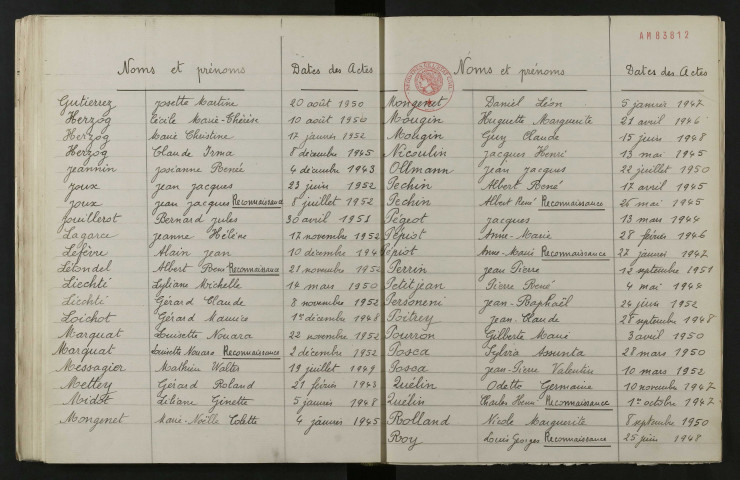 AM83812
Noms et prénoms Dates des Actes
Gutierrez Josette Martine 20 août 1950
Herzog Cécile Marie-Thérèse 10 août 1950
Herzog Marie Christine 17 janvier 1952
Herzog Claude Irma 8 décembre 1945
Jeannin Josianne Renée 4 décembre 1943
Joux Jean Jacques 23 juin 1952
Joux Jean Jacques Reconnaissance 8 juillet 1952
Jouillerot Bernard Jules 30 avril 1951
Lagarce Jeanne Hélène 17 novembre 1952
Lefèvre Alain Jean 10 décembre 194
Létondel Albert Reconnaissance 21 novembre 1952
Liechti Lyliane Michelle 14 mars 1950
Liechti Gérard Claude 8 novembre 1952
Loichot Gérard Maurice 1er décembre 1948
Marquat Louisette Nouara 22 novembre 1952
Marquat Louisette Nouara Reconnaissance 2 décembre 1952
Messagier Mathieu Walter 19 juillet 1949
Mettey Gérard Roland 21 février 1943
Midot Liliane Ginette 5 janvier 1948
Mongenet Marie-Noëlle Colette 4 janvier 1945
Noms et prénoms Dates des Actes
Mongenet Daniel Léon 5 janvier 1947
Mougin Huguette Marguerite 21 avril 1946
Mougin Guy Claude 15 juin 1948
Nicoulin Jacques Henri 13 mai 1945
Ollmann Jean Jacques 22 juillet 1950
Pechin Albert René 17 avril 1945
Pechin Albert René Reconnaissance 26 mai 1945
Pégeot Jacques 13 mars 1944
Pépiot Anne-Marie 28 février 1946
Pépiot Anne-Marie Reconnaissance 22 janvier 1947
Perrin Jean Pierre 12 septembre 1951
Petitjean Pierre René 4 mai 1944
Personeni Jean-Raphaël 24 juin 1952
Poitrey Jean-Claude 28 septembre 1948
Pourron Gilberte Marie 3 avril 1950
Posca Sylvia Assunta 28 mars 1950
Posca Jean-Pierre Valentin 10 mars 1952
Quélin Odette Germaine 10 novembre 1947
Quélin Charles Henri Reconnaissance 1er octobre 1947
Rolland Nicole Marguerite 8 septembre 1950
Roy Louis Georges Reconnaissance 25 juin 1948